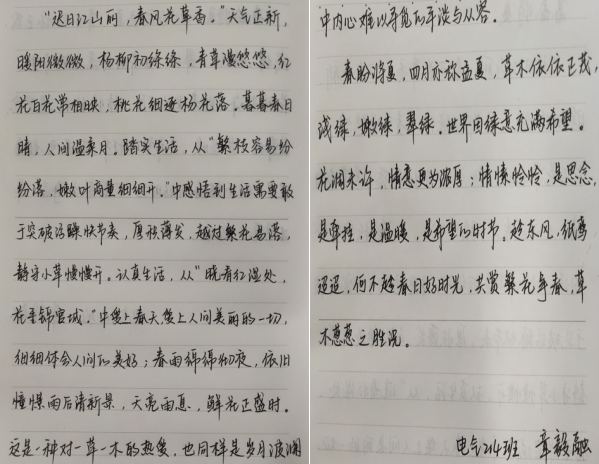 “迟日江山丽，春风花草香。”天气正新，
暖阳微微，杨柳初绿绦，青草湿悠悠，红
花白花常相映，桃花细逐杨花落。暮暮春日
晴，人间温柔月。踏实生活，从“繁枝容易纷
纷落，嫩叶商量细细开。”中感悟到生活需要敢
于突破浮躁快节奏，厚积薄发，越过繁花易落，
静守小草慢慢开。认真生活，从“晓看红湿处，
花重锦官城。”中爱上春天爱上人间美丽的一切，
细细体会人间的美好；春雨绵绵彻夜，依旧
憧憬雨后清新景，天亮雨息，鲜花正盛时。
这是一种对一草一木的热爱，也同样是岁月波澜
中内心难以寻觅的平淡与从容。
春盼将夏，四月亦称孟夏，草木依依正茂，
浅绿，嫩绿，翠绿。世界因绿意充满希望。
花凋未许，情意更为浓厚；情愫怜怜，是思念，
是牵挂，是温暖，是希望的时节。趁东风，纸鸢
迢迢，何不趁春日好时光，共赏繁花争春，草
木葱葱之胜况。
电气214班 章毅融